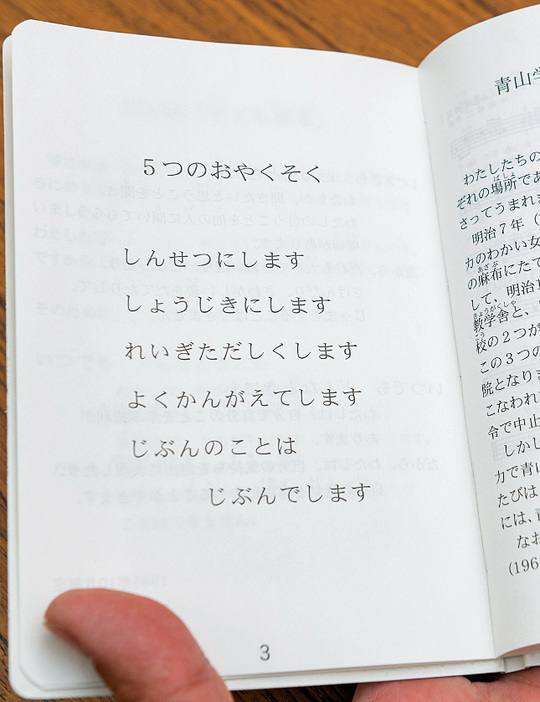 5つのおやくそく
しんせつにします
しょうじきにします
れいぎただしくします
よくかんがえてします
じぶんのことは
じぶんでします
3
青山学
わたしたちの
ぞれの場所であ
さってうまれま
明治7年(
カのわかい女
の麻布にたて
して、明治1
教学舎と、
校の2つが
この3つの
院となりま
こなわれ
令で中止
しかし
力で青山
たびは
には、
なお
(196